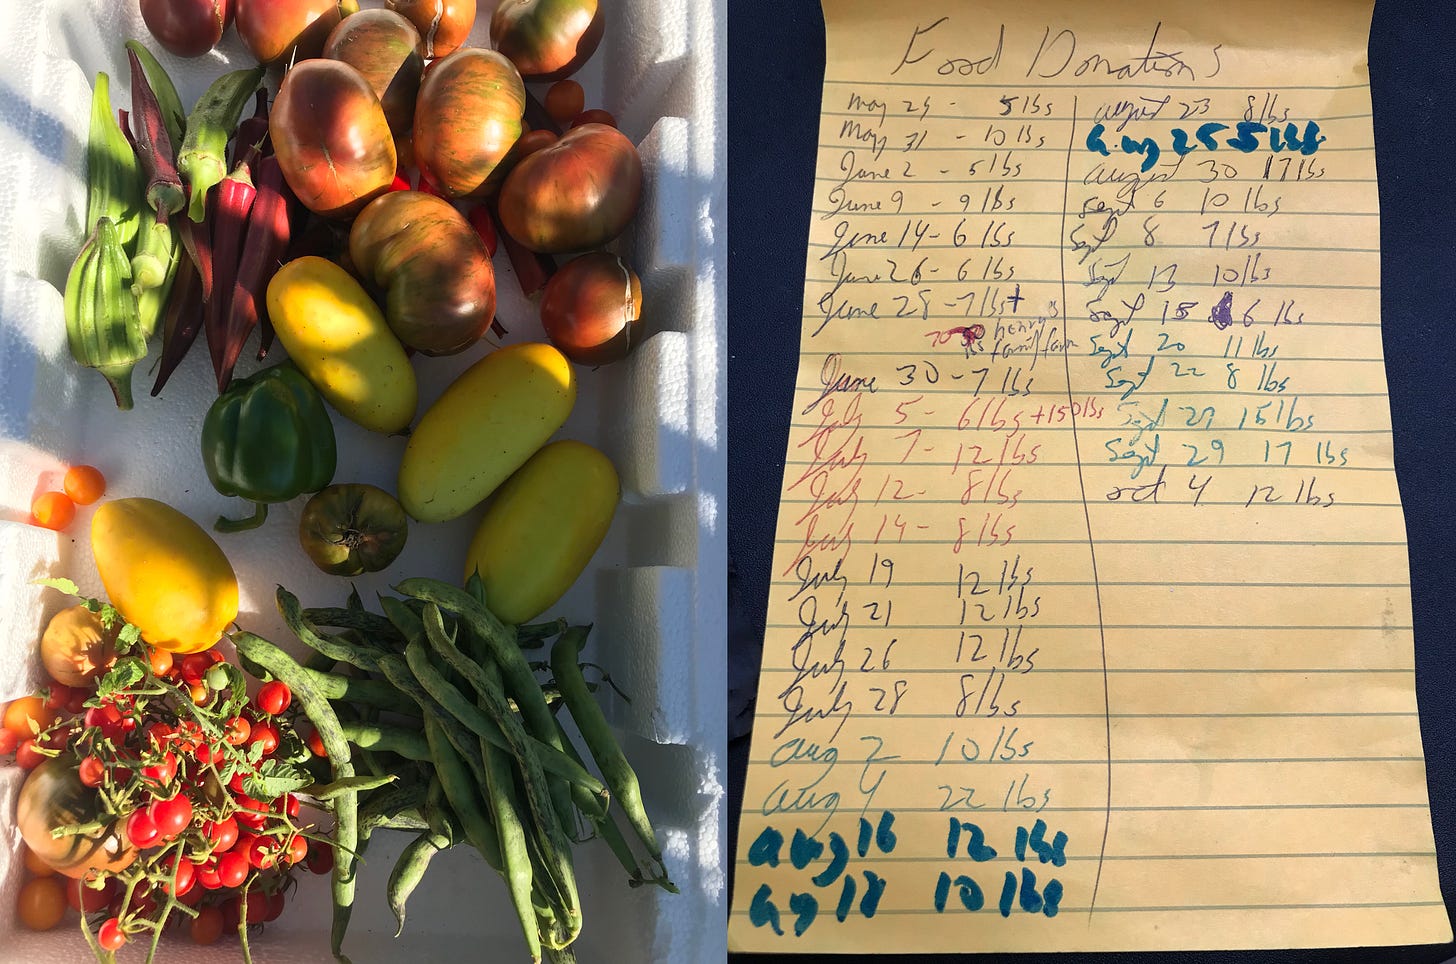 Food Donations
May 29 - 5 lbs
May 31 - 10 lbs
June 2 - 5 lbs
June 9 - 9 lbs
June 14 - 6 lbs
June 26 - 6 lbs
June 28 - 7 lbs +
70 lbs henry's
family farm
June 30 - 7 lbs
July 5 - 6 lbs + 150 lbs
July 7 - 12 lbs
July 12 - 8 lbs
July 14 - 8 lbs
July 19 12 lbs
July 21 12 lbs
July 26 12 lbs
July 28 8 lbs
aug 2 10 lbs
aug 4 22 lbs
aug 16 12 lbs
aug 18 10 lbs
august 23 8 lbs
aug 25 5 lbs
august 30 17 lbs
sept 6 10 lbs
Sept 8 7 lbs
Sept 13 10 lbs
Sept 15 6 lbs
Sept 20 11 lbs
Sept 22 8 lbs
Sept 27 15 lbs
Sept 29 17 lbs
oct 4 12 lbs